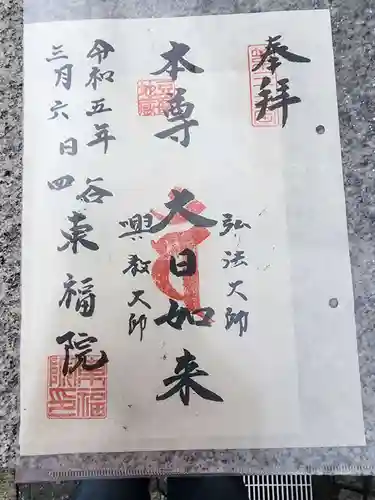 奉拝
本尊
大日如来
弘法大師
興教大師
令和五年
三月六日
四谷
東福院
東福院印